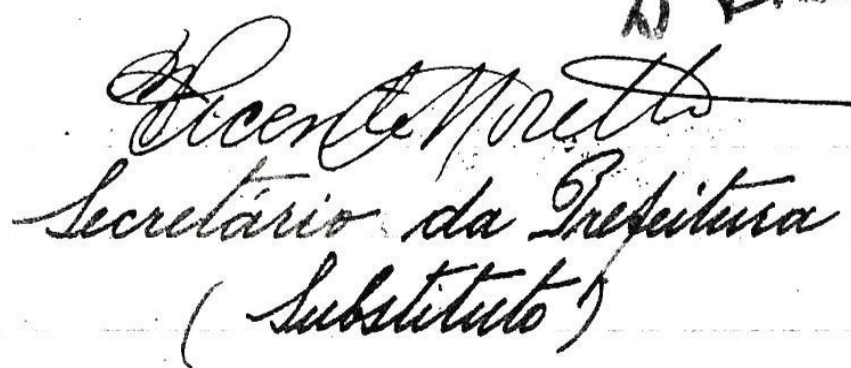 Vicente Moretto
Secretário da Prefeitura
(Substituto)